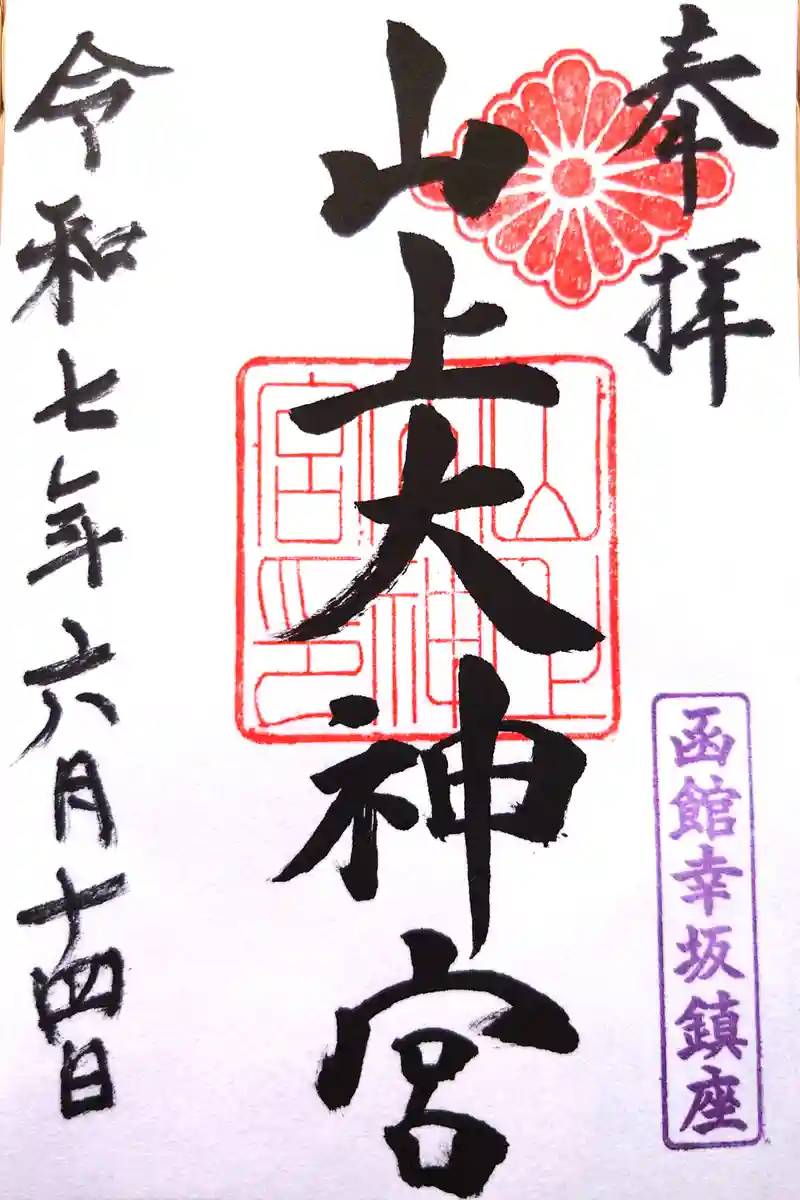 奉拝
函館幸坂鎮座
山上大神宮
山上大神宮印
令和七年六月十四日